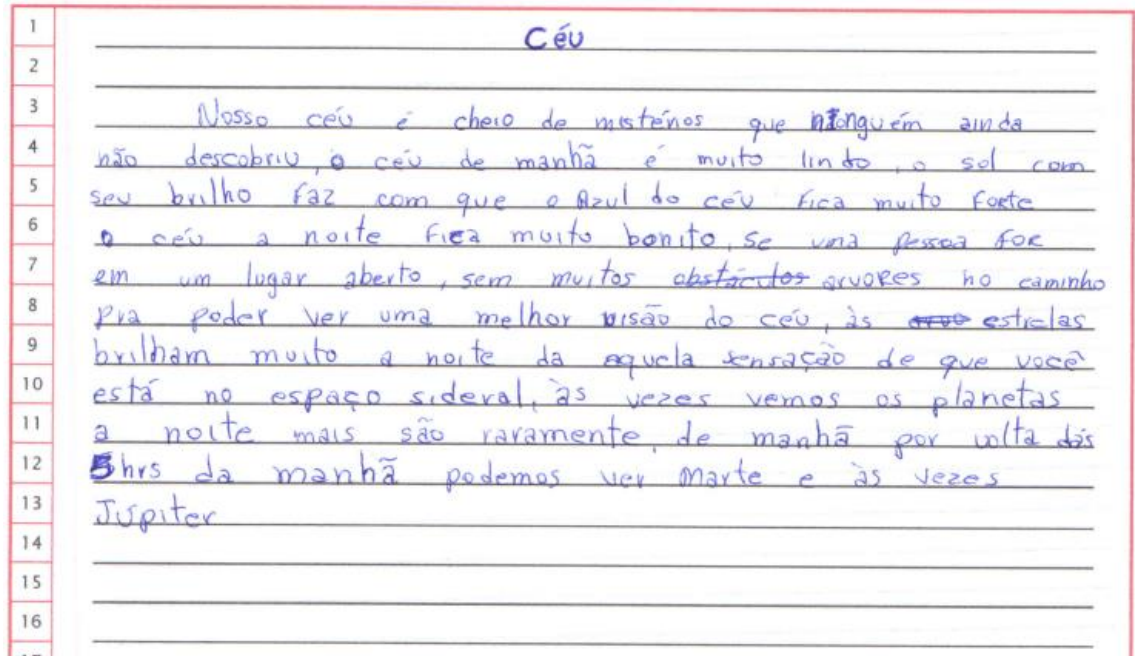 1 Céu
2
3 Nosso céu é cheio de mistérios que ninguém ainda
4 não descobriu, o céu de manhã é muito lindo, o sol com
5 seu brilho faz com que o Azul do céu fica muito forte
6 o céu a noite fica muito bonito, se uma pessoa for
7 em um lugar aberto, sem muitos obstáculos arvores no caminho
8 pra poder ver uma melhor visão do céu, às estrelas
9 brilham muito a noite da aquela sensação de que você
10 está no espaço sideral, às vezes vemos os planetas
11 a noite mais são raramente, de manhã por volta dás
12 5hrs da manhã podemos ver Marte e às vezes
13 Júpiter
14
15
16